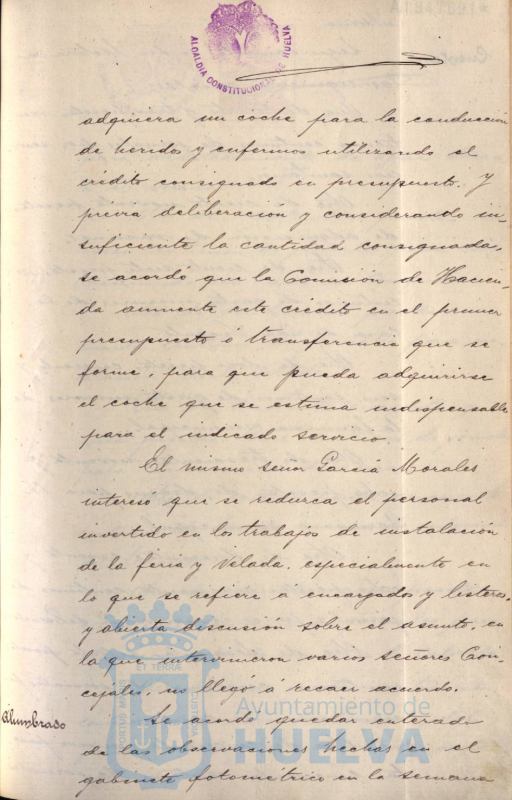 ALCALDIA CONSTITUCIONAL DE HUELVA
adquiera un coche para la conducción
de heridos y enfermos utilizando el
crédito consignado en presupuesto. Y
previa deliberación y considerando in-
suficiente la cantidad consignada,
se acordó que la Comisión de Hacien-
da aumente este crédito en el primer
presupuesto ó transferencia que se
forme, para que pueda adquirirse
el coche que se estima indispensable
para el indicado servicio.
El mismo señor García Morales
interesó que se reduzca el personal
invertido en los trabajos de instalación
de la feria y Velada, especialmente en
lo que se refiere á encargados y listeros,
y abierta discusión sobre el asunto, en
la que intervinieron varios señores Con-
cejales, no llegó á recaer acuerdo.
Alumbrado
Se acordó quedar enterado
de las observaciones hechas en el
gabinete fotométrico en la semana
Ayuntamiento de
HUELVA